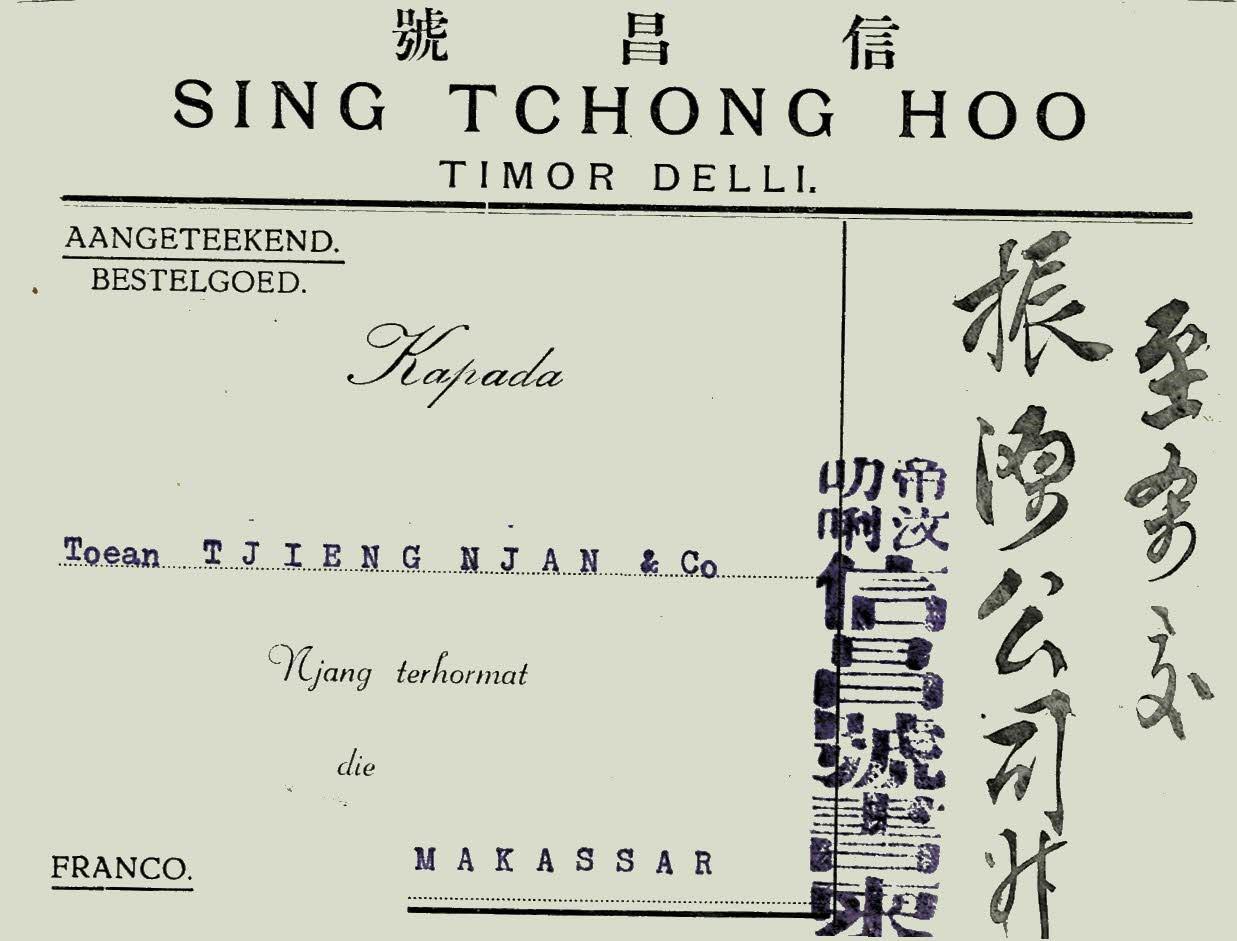 信昌號
SING TCHONG HOO
TIMOR DELLI.
AANGETEEKEND.
BESTELGOED.
Kapada
Toean TJIENG NJAN & Co
Njang terhormat
die
MAKASSAR
FRANCO.
至寄交
振源公司
帝汶
叻唎
信昌號書柬